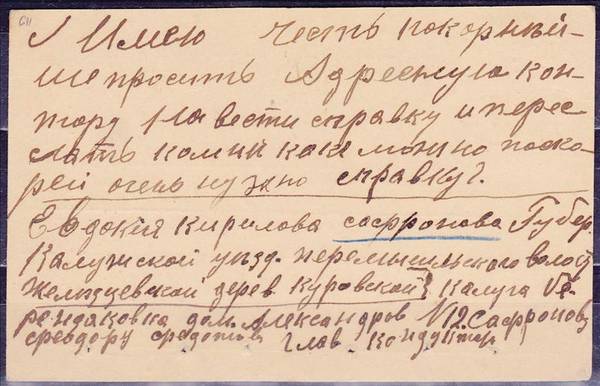 611
Имею честь покорнѣй-
ше просить Адресную кон-
тору навести справку и перес
лать комнѣ какъ можно поско-
рей очень нужно справку.
Евдокія Кирилова Сафронова Губер.
Калужской уѣзд. перемышльского волос
Желѣзцевской дерев Куровской Калуга
дом. Александров №12. Сафронову
Глав. Кондуктор